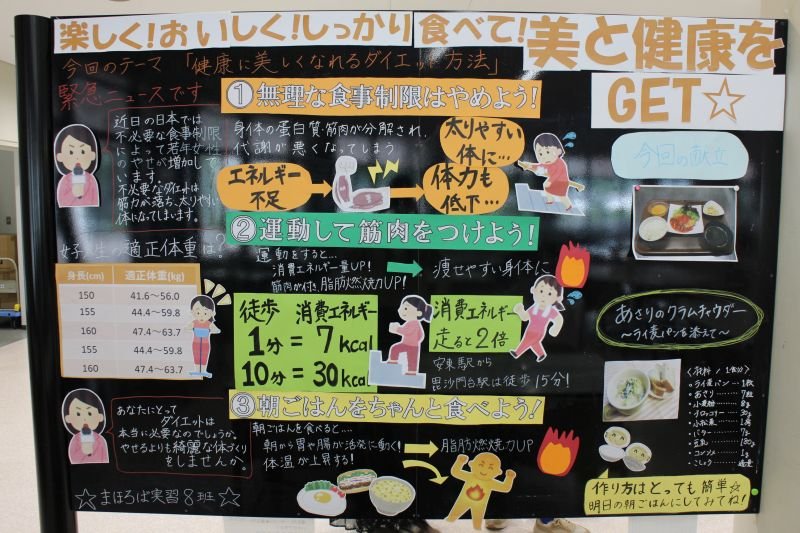 楽しく!おいしく!しっかり食べて!美と健康を
GET☆
今回のテーマ 「健康に美しくなれるダイエット方法」
緊急ニュースです
近日の日本では
不必要な食事制限
によって若年女性
のやせが増加して
います。
不必要なダイエットは
筋力が落ち、太りやすい
体になってしまいます。
女子学生の適正体重は?
身長(cm) 適正体重(kg)
150 41.6~56.0
155 44.4~59.8
160 47.4~63.7
155 44.4~59.8
160 47.4~63.7
あなたにとって
ダイエットは
本当に必要なのでしょうか。
やせるよりも綺麗な体づくり
をしませんか。
☆まほろば実習8班☆
①無理な食事制限はやめよう!
身体の蛋白質・筋肉が分解され、
代謝が悪くなってしまう
エネルギー
不足
太りやすい
体に…
体力も
低下…
②運動して筋肉をつけよう!
運動をすると…
消費エネルギー量UP!
筋肉が付き、脂肪燃焼力UP!
痩せやすい身体に
徒歩 消費エネルギー
1分=7kcal
10分=30kcal
消費エネルギー
走ると2倍
安東駅から
毘沙門台駅は徒歩15分!
③朝ごはんをちゃんと食べよう!
朝ごはんを食べると…
朝から胃や腸が活発に動く!
体温が上昇する!
脂肪燃焼力UP
今回の献立
あさりのクラムチャウダー
~ライ麦パンを添えて~
<材料/1食分>
・ライ麦パン…1枚
・あさり…7粒
・小麦粉…8g
・ブロッコリー…30g
・小松菜…1房
・バター…7g
・豆乳…180g
・コンソメ…1g
・こしょう…適量
作り方はとっても簡単☆
明日の朝ごはんにしてみてね!